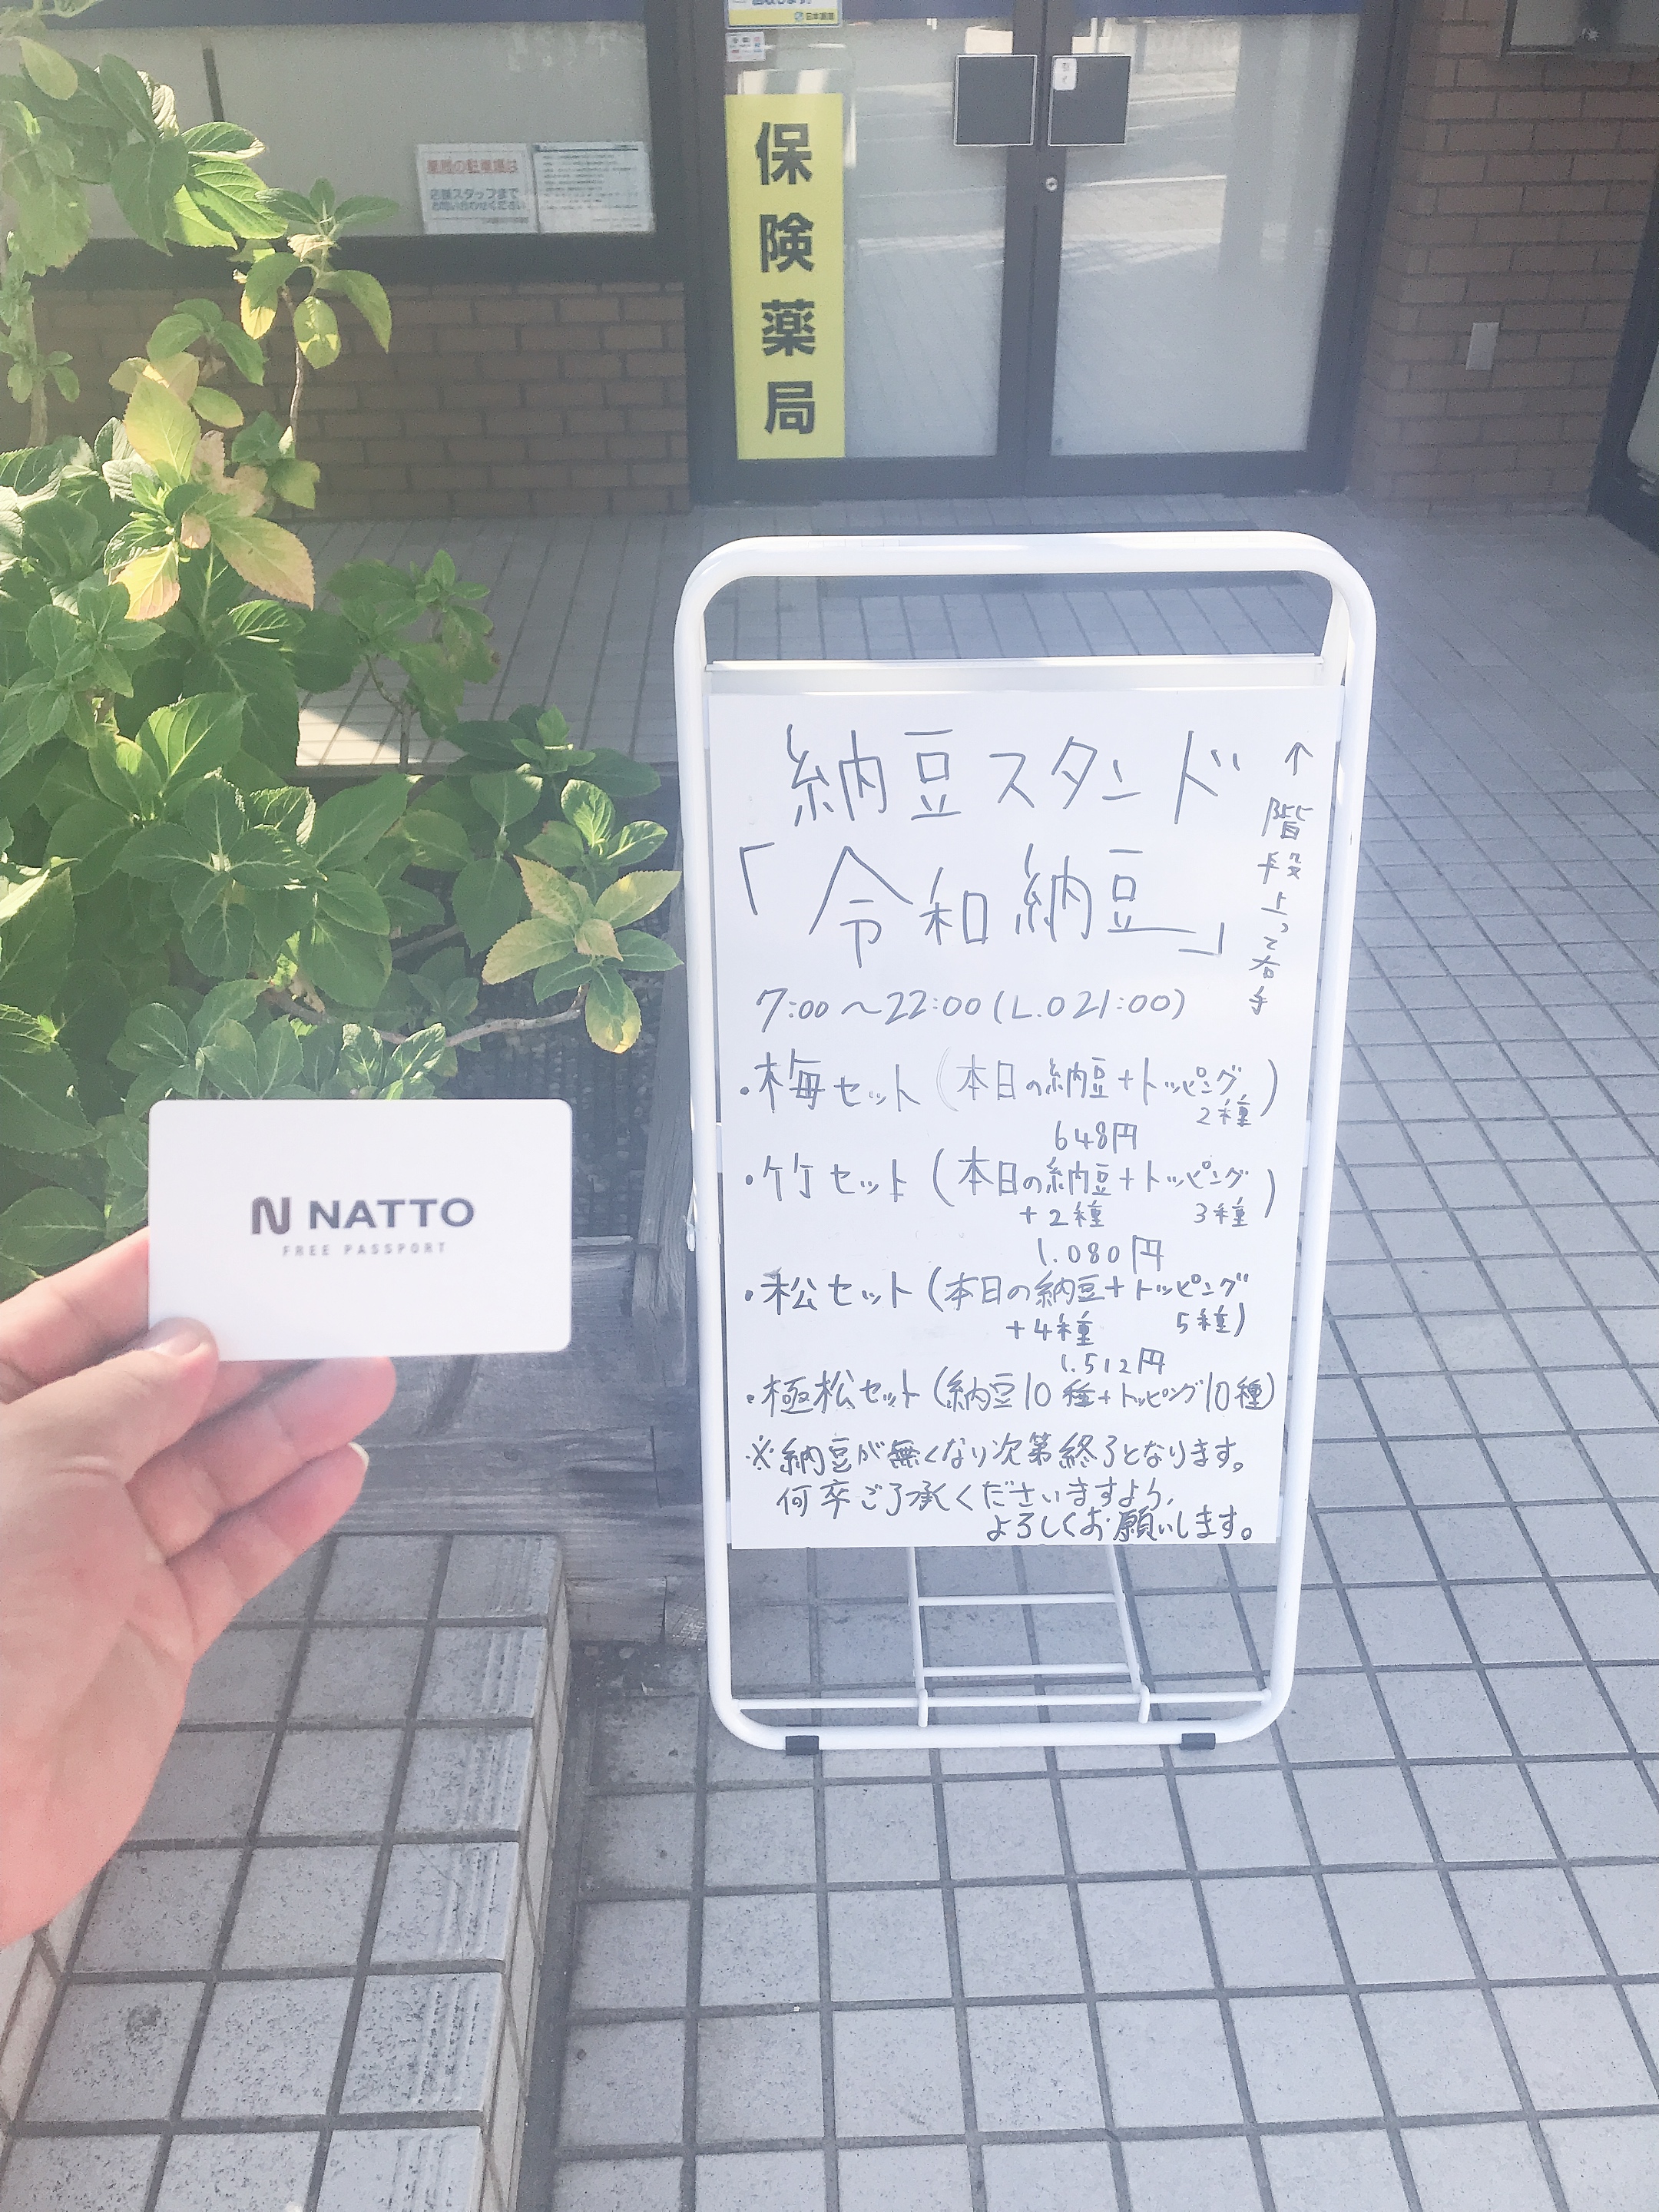 日本調剤
保険薬局
引く
薬局の駐車場は
店舗スタッフまで
お問い合わせください
納豆スタンド
「令和納豆」
↑階段上って右手
7:00〜22:00(L.O 21:00)
・梅セット(本日の納豆+トッピング
2種)
648円
・竹セット(本日の納豆+トッピング
+2種 3種)
1.080円
・松セット(本日の納豆+トッピング
+4種 5種)
1.512円
・極松セット(納豆10種+トッピング10種)
※納豆が無くなり次第終了となります。
何卒ご了承くださいますよう、
よろしくお願いします。
N NATTO
FREE PASSPORT